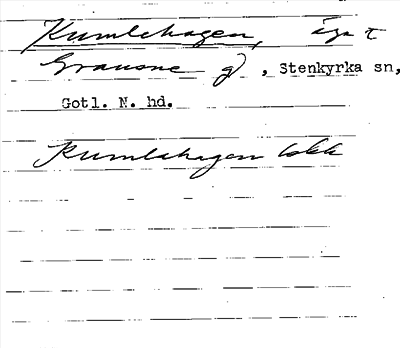 Kumlehagen, äga t
Gransne g), Stenkyrka sn,
Gotl. N. hd.
Kumlahagen